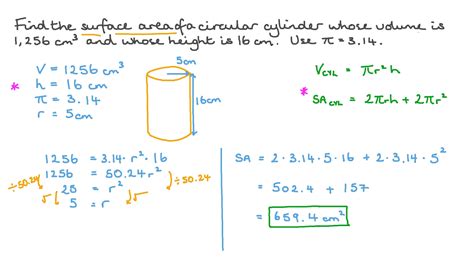 Find the surface area of a circular cylinder whose volume is
1,256 cm³ and whose height is 16 cm. Use π = 3.14.
V = 1256 cm³
* h = 16 cm
π = 3.14
r = 5cm
5cm
16cm
V_CYL = πr²h
* SA_CYL = 2πrh + 2πr²
1256 = 3.14·r²·16
1256 = 50.24r²
÷50.24
÷50.24
25 = r²
√
√
5 = r
SA = 2·3.14·5·16 + 2·3.14·5²
= 502.4 + 157
= 659.4 cm²